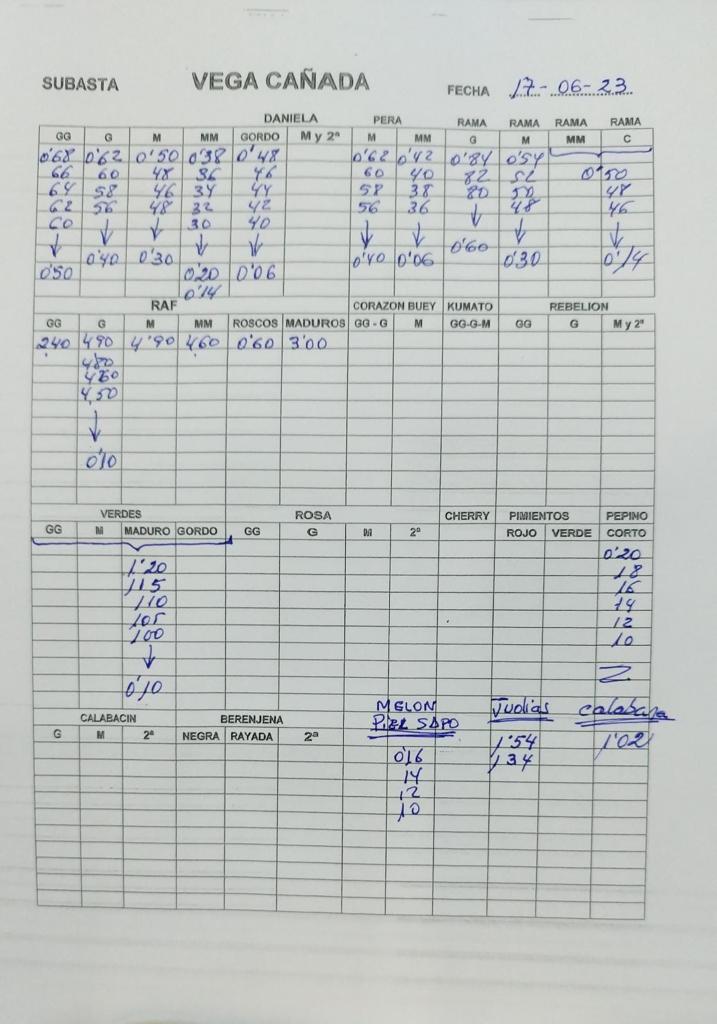 SUBASTA VEGA CAÑADA FECHA 17-06-23
DANIELA PERA RAMA RAMA RAMA RAMA
GG G M MM GORDO M y 2ª M MM G M MM C
0'68 0'62 0'50 0'38 0'48 0'62 0'42 0'84 0'54
66 60 48 36 46 60 40 82 52 0'50
64 58 46 34 44 58 38 80 50 48
62 56 48 32 42 56 36 ↓ 48 46
60 ↓ ↓ 30 40 ↓ ↓ 0'60 ↓ ↓
↓ 0'40 0'30 ↓ ↓ 0'40 0'06 0'30 0'14
0'50 0'20 0'06
0'14
RAF CORAZON BUEY KUMATO REBELION
GG G M MM ROSCOS MADUROS GG - G M GG-G-M GG G M y 2ª
240 490 4'90 460 0'60 3'00
480
460
4,50
↓
0'10
VERDES ROSA CHERRY PIMIENTOS PEPINO
GG M MADURO GORDO GG G M 2ª ROJO VERDE CORTO
1'20 0'20
115 18
110 16
105 14
100 12
↓ 10
0'10
CALABACIN BERENJENA MELON PIEL SAPO Judias calabaza
G M 2ª NEGRA RAYADA 2ª
0'16 1'54 1'02
14 1,34
12
10